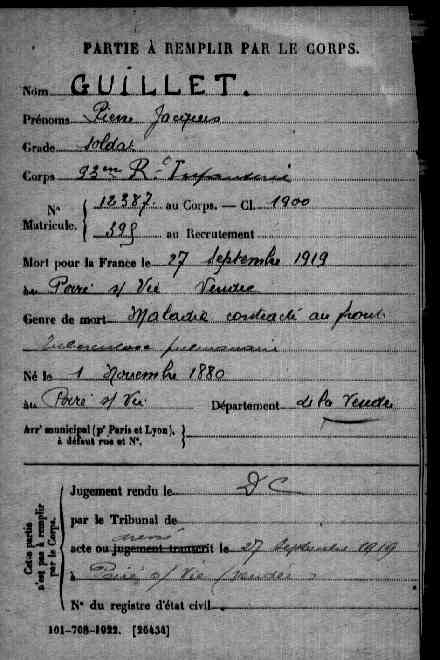 PARTIE À REMPLIR PAR LE CORPS.
Nom GUILLET.
Prénoms Pierre Jacques
Grade soldat
Corps 93me R. d'Infanterie
No Matricule. { 12387. au Corps. — Cl. 1900
395 au Recrutement
Mort pour la France le 27 Septembre 1919
au Poiré s/ Vie Vendée
Genre de mort Maladie contractée au front
tuberculose pulmonaire
Né le 1 Novembre 1880
au Poiré s/ Vie Département de la Vendée
Arrt municipal (pr Paris et Lyon), à défaut rue et No. }
Cette partie n'est pas à remplir par le Corps.
Jugement rendu le DC
par le Tribunal de
acte ou jugement transcrit le 27 Septembre 1919
à Poiré s/ Vie (Vendée)
No du registre d'état civil
101-708-1922. [26434]